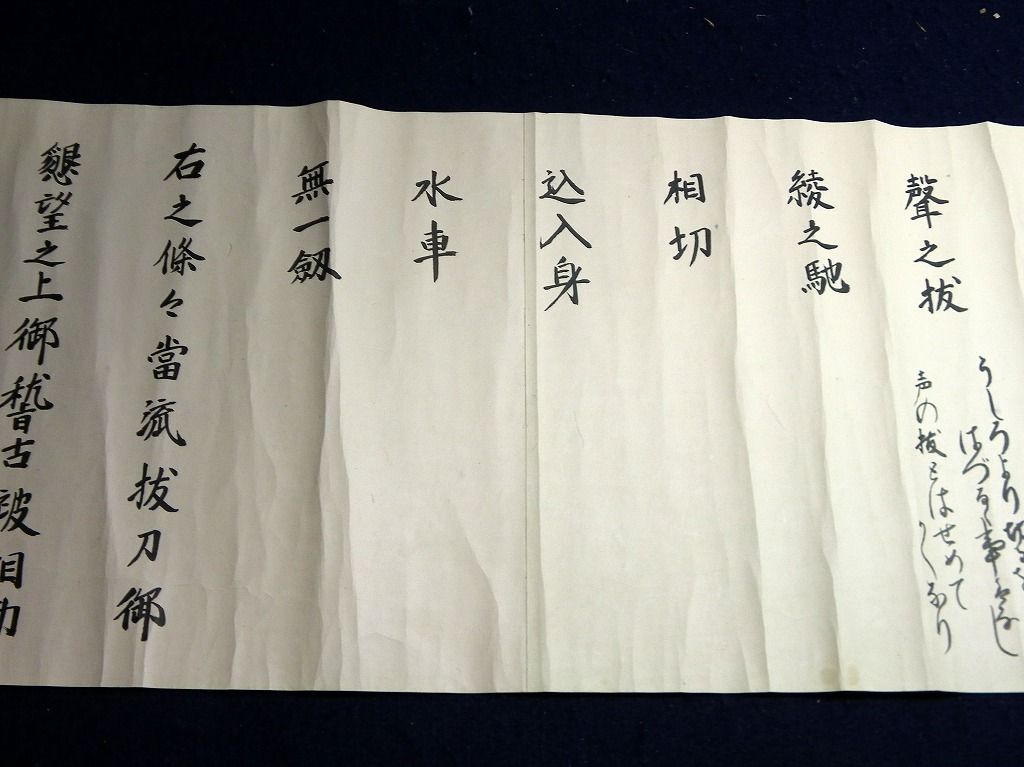 聲之抜
うしろより
はづる事なし
声の抜とはせめて
なり
綾之馳
相切
込入身
水車
無一劔
右之條々當流抜刀御
懇望之上御稽古被